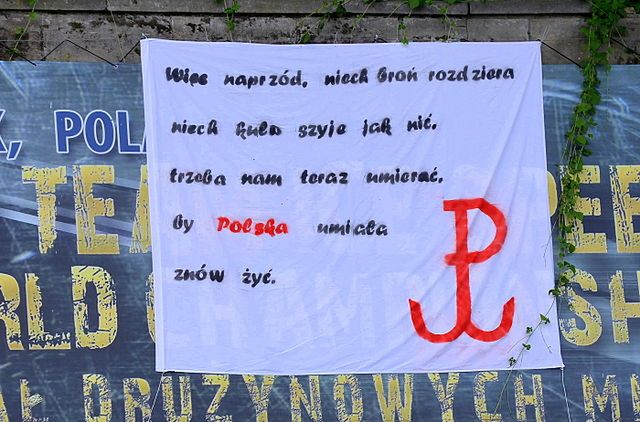 Więc naprzód, niech broń rozdziera
niech kula szyje jak nić,
trzeba nam teraz umierać,
by Polska umiała
znów żyć.
, POLA
TEA
RLD CHAMPIONSH
DRUŻYNOWYCH M